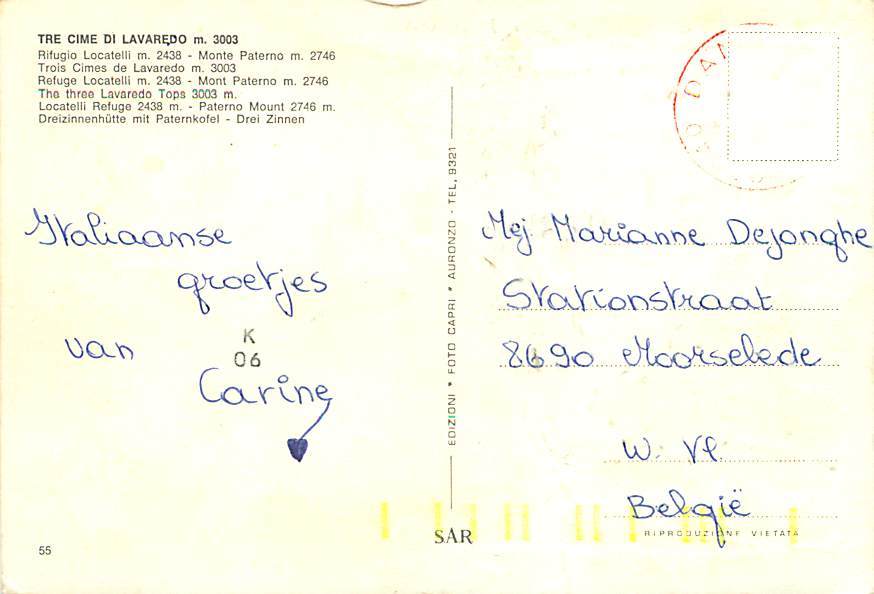 TRE CIME DI LAVAREDO m. 3003
Rifugio Locatelli m. 2438 - Monte Paterno m. 2746
Trois Cimes de Lavaredo m. 3003
Refuge Locatelli m. 2438 - Mont Paterno m. 2746
The three Lavaredo Tops 3003 m.
Locatelli Refuge 2438 m. - Paterno Mount 2746 m.
Dreizinnenhütte mit Paternkofel - Drei Zinnen
Italiaanse
groetjes
van
K
06
Carine
EDIZIONI * FOTO CAPRI * AURONZO - TEL. 9321
Mej Marianne Dejonghe
Stationstraat
8690 Moorselede
W. Vl.
België
SAR
RIPRODUZIONE VIETATA
55